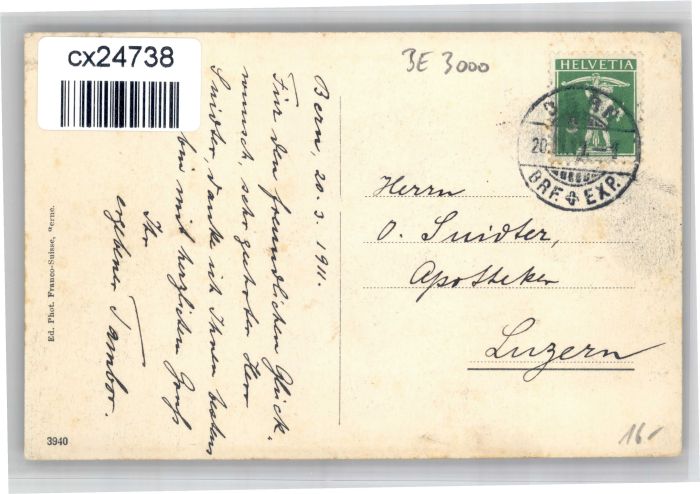 cx24738
BE 3000
HELVETIA
BRF. EXP.
20.
Bern, 20. 3. 1911.
Für den freundlichen Glück-
wunsch, sehr geehrter Herr
Suidter, danke ich Ihnen bestens
bin mit herzlichem Gruß
Ihr
ergebener
Herrn
O. Suidter,
Apotheker
Luzern
Ed. Phot. Franco-Suisse, Berne.
3940
16.-